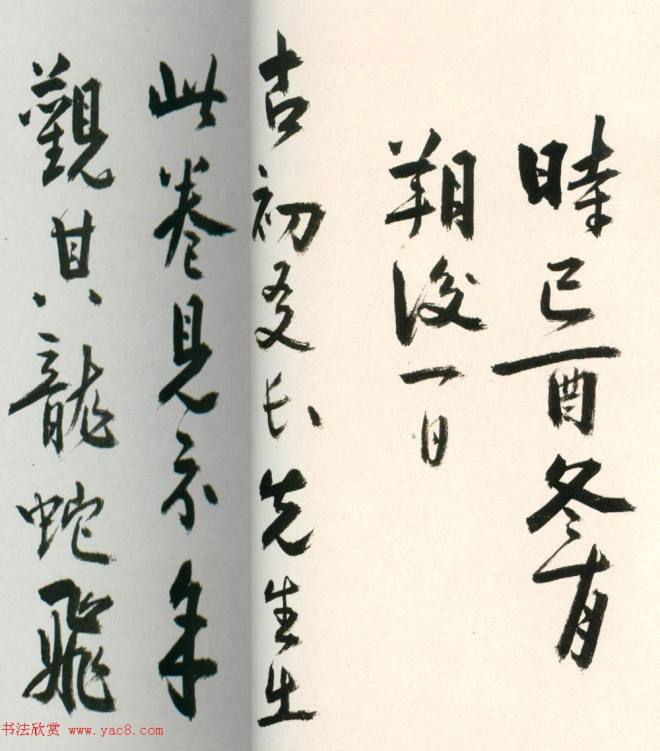 時己酉冬十月
朔後一日
古初友長先生出
此卷見示余
觀其龍蛇飛
书法欣赏 www.yac8.com